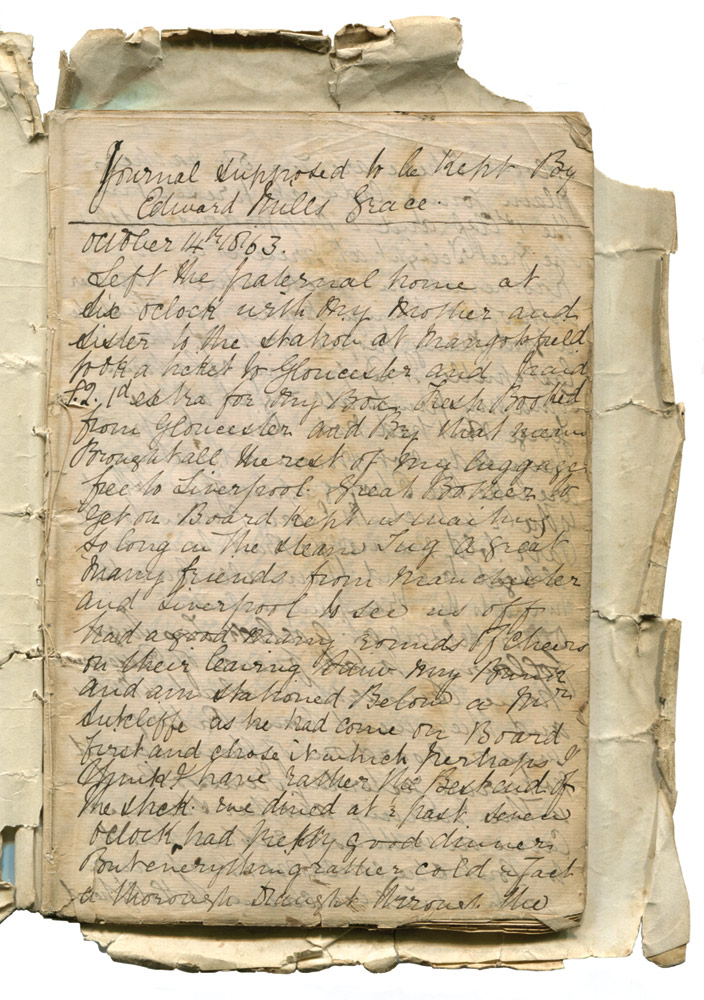 Journal supposed to be Kept By
Edward Mills Grace.
October 14th 1863.
Left the paternal home at
six oclock with my Mother and
sister to the station at Mangotsfield
took a ticket to Gloucester and paid
1d extra for my Box Fresh Booked
from Gloucester and By that means
Brought all the rest of my luggage
free to Liverpool. Great Bother to
get on Board kept us waiting
so long in the steam Tug a great
many friends from Manchester
and Liverpool to see us off
had a good many rounds of Cheers
on their leaving my
and am stationed Below a Mr
Sutcliffe as he had come on Board
first and chose it which perhaps I
think I have rather the Best end of
the stick. we dined at ½ past seven
oclock, had pretty good dinner
But everything rather cold in fact
a thorough Draught through the